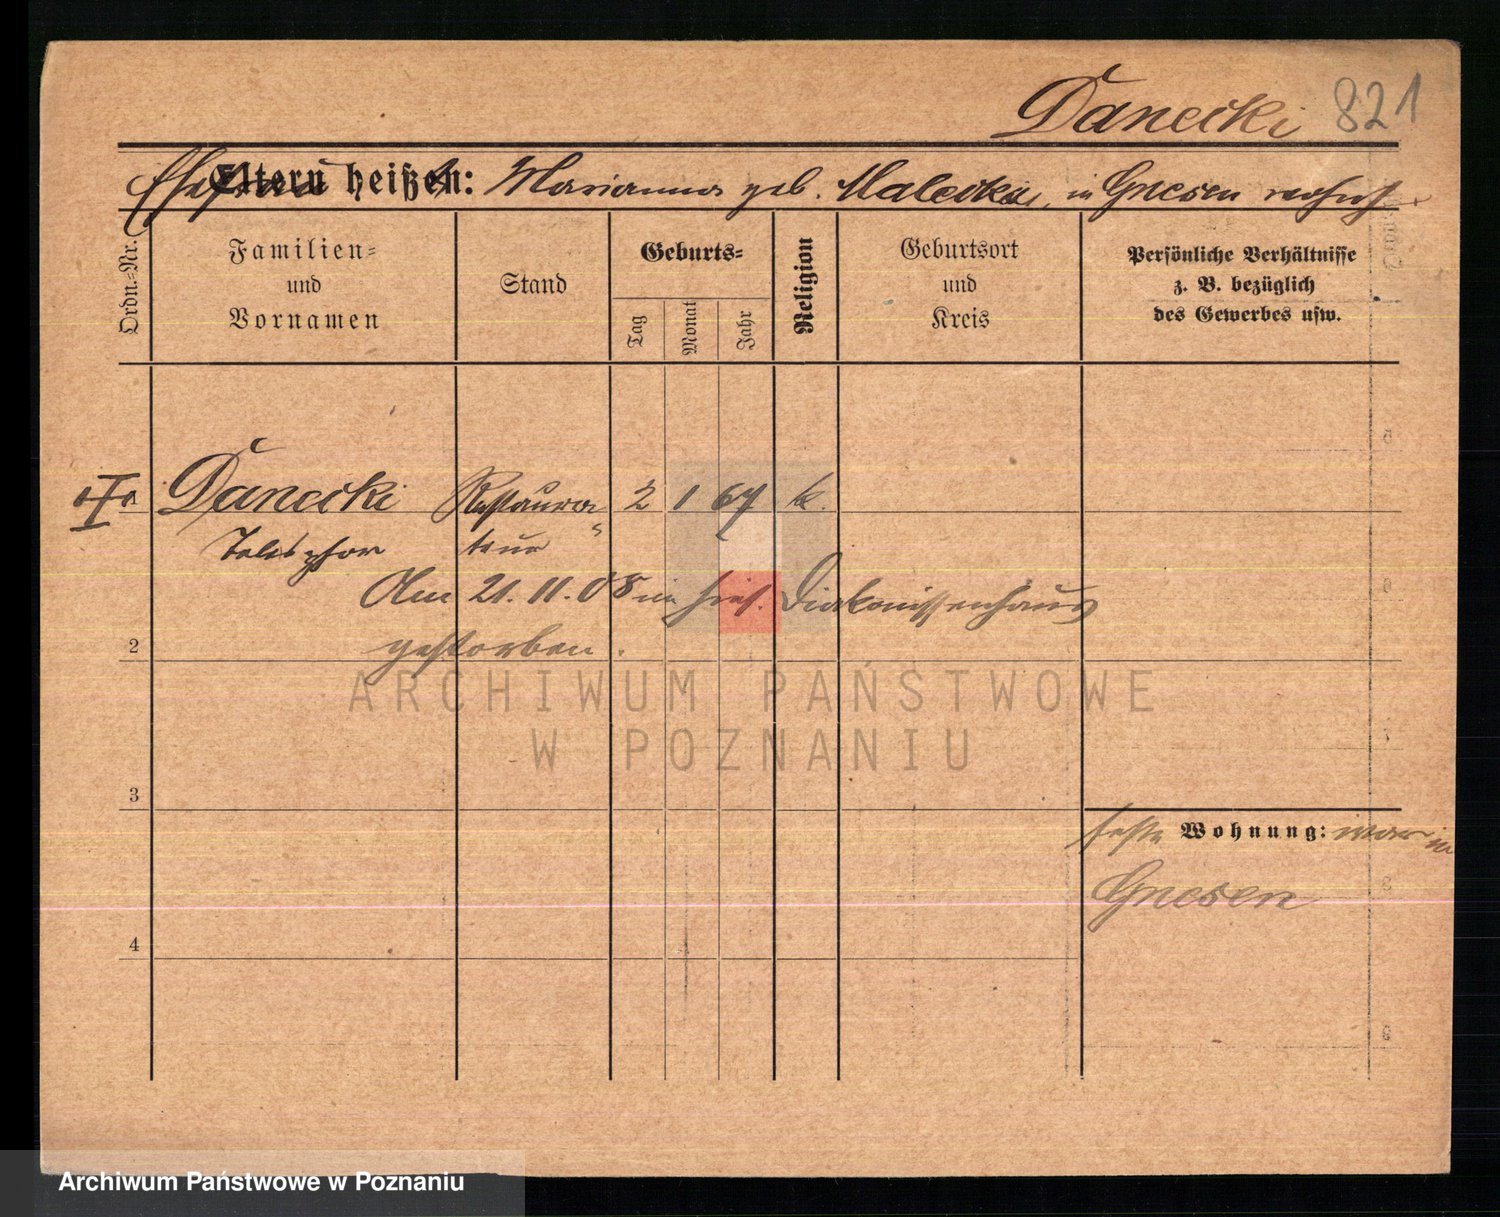 Danecki 821
Ehefrau heißt: Marianna geb. Malecka, in Gnesen wohnh.
Ordn.=Nr.
Familien=
und
Vornamen
Stand
Geburts=
Tag
Monat
Jahr
Religion
Geburtsort
und
Kreis
Persönliche Verhältnisse
z. B. bezüglich
des Gewerbes usw.
I Danecki Restaura- 2 1 67 k.
Telesphor teur
Am 21. 11. 08 im hies. Diakonissenhaus
gestorben.
2
ARCHIWUM PAŃSTWOWE
W POZNANIU
3
feste Wohnung: war in
Gnesen
4
Archiwum Państwowe w Poznaniu